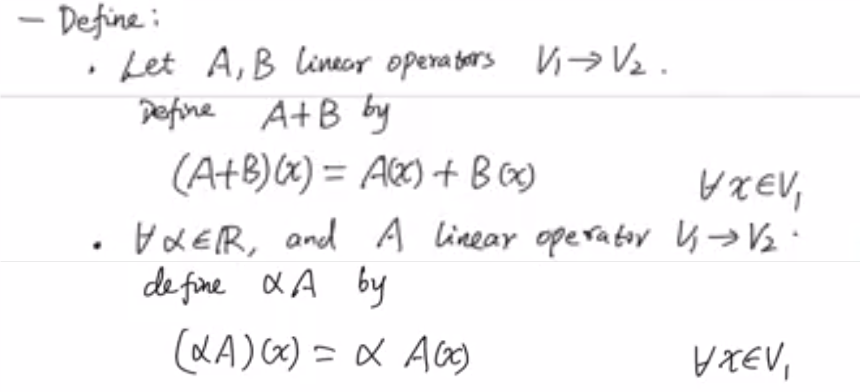 — Define:
• Let A, B linear operators V₁→V₂.
Define A+B by
(A+B)(x) = A(x) + B(x) ∀x∈V₁
• ∀α∈ℝ, and A linear operator V₁→V₂.
define αA by
(αA)(x) = α A(x) ∀x∈V₁